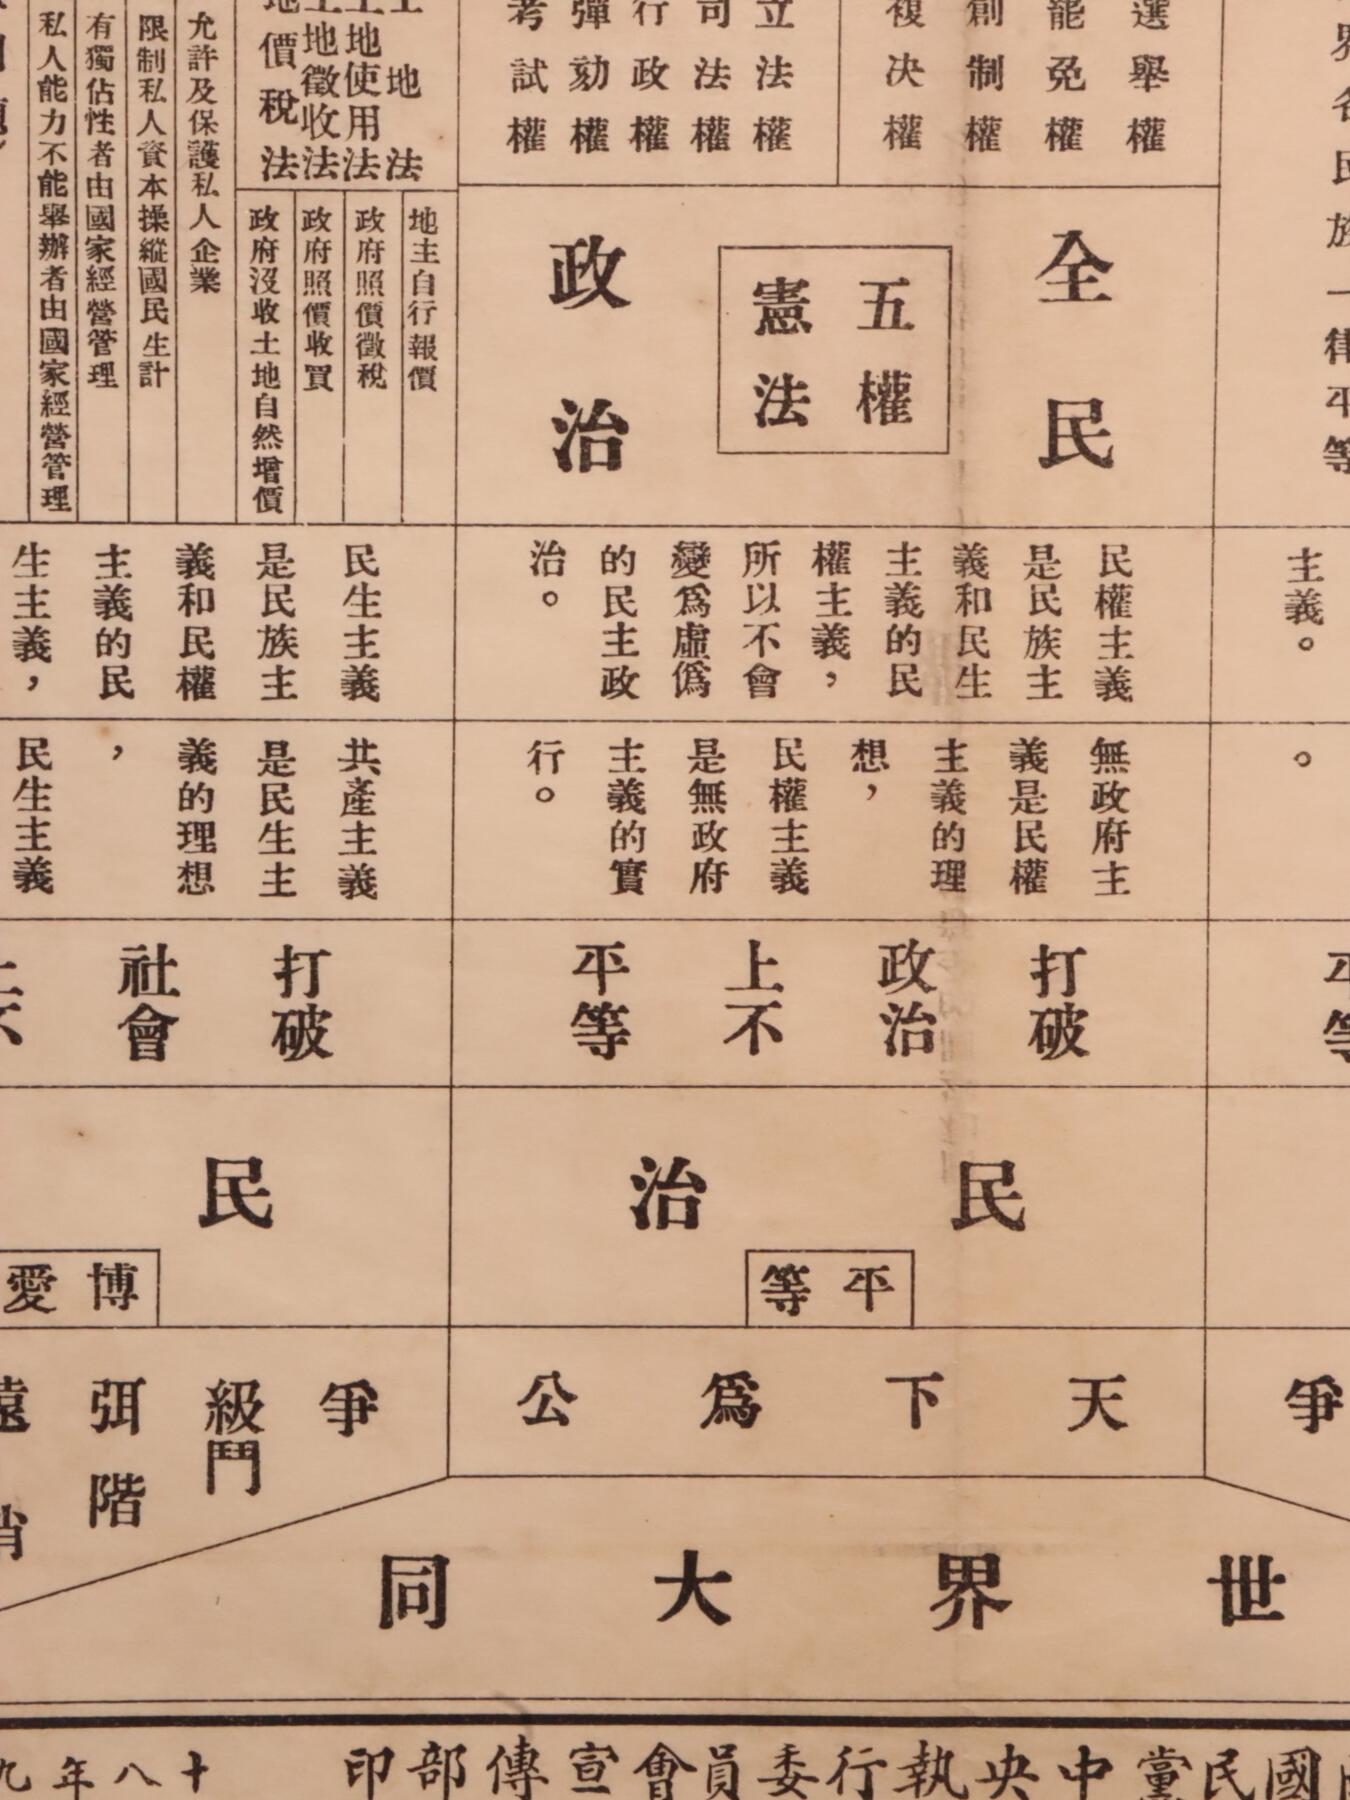 界各民族一律平等
主義。
。
平等
爭
選舉權
罷免權
創制權
複决權
立法權
司法權
行政權
彈劾權
考試權
全民
政治
五權
憲法
民權主義
是民族主
義和民生
主義的民
權主義，
所以不會
變爲虛僞
的民主政
治。
無政府主
義是民權
主義的理
想，
民權主義
是無政府
主義的實
行。
打破
政治
上不
平等
民治
平等
天下爲公
土地法
土地使用法
土地徵收法
地價稅法
地主自行報價
政府照價徵稅
政府照價收買
政府沒收土地自然增價
允許及保護私人企業
限制私人資本操縱國民生計
有獨佔性者由國家經營管理
私人能力不能舉辦者由國家經營管理
民生主義
是民族主
義和民權
主義的民
生主義，
共產主義
是民生主
義的理想
，
民生主義
打破
社會
上不
民
博愛
爭
級鬥
弭階
遠消
世界大同
國民黨中央執行委員會宣傳部印
十八年九